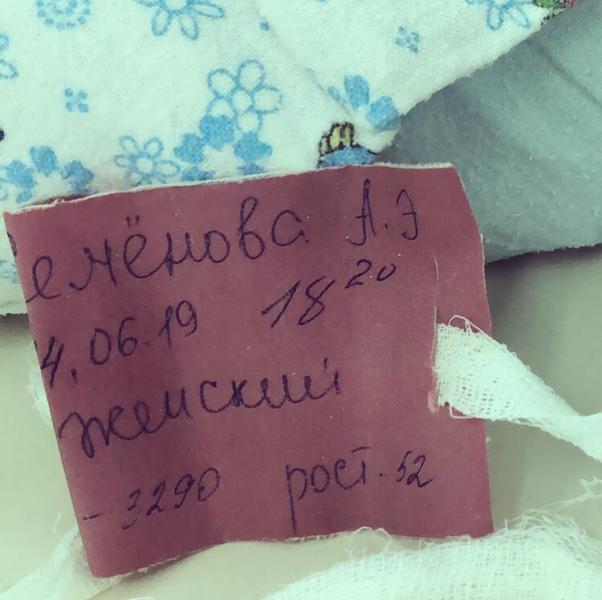 емёнова А.Э
4.06.19 18 20
женский
- 3290 рост-52